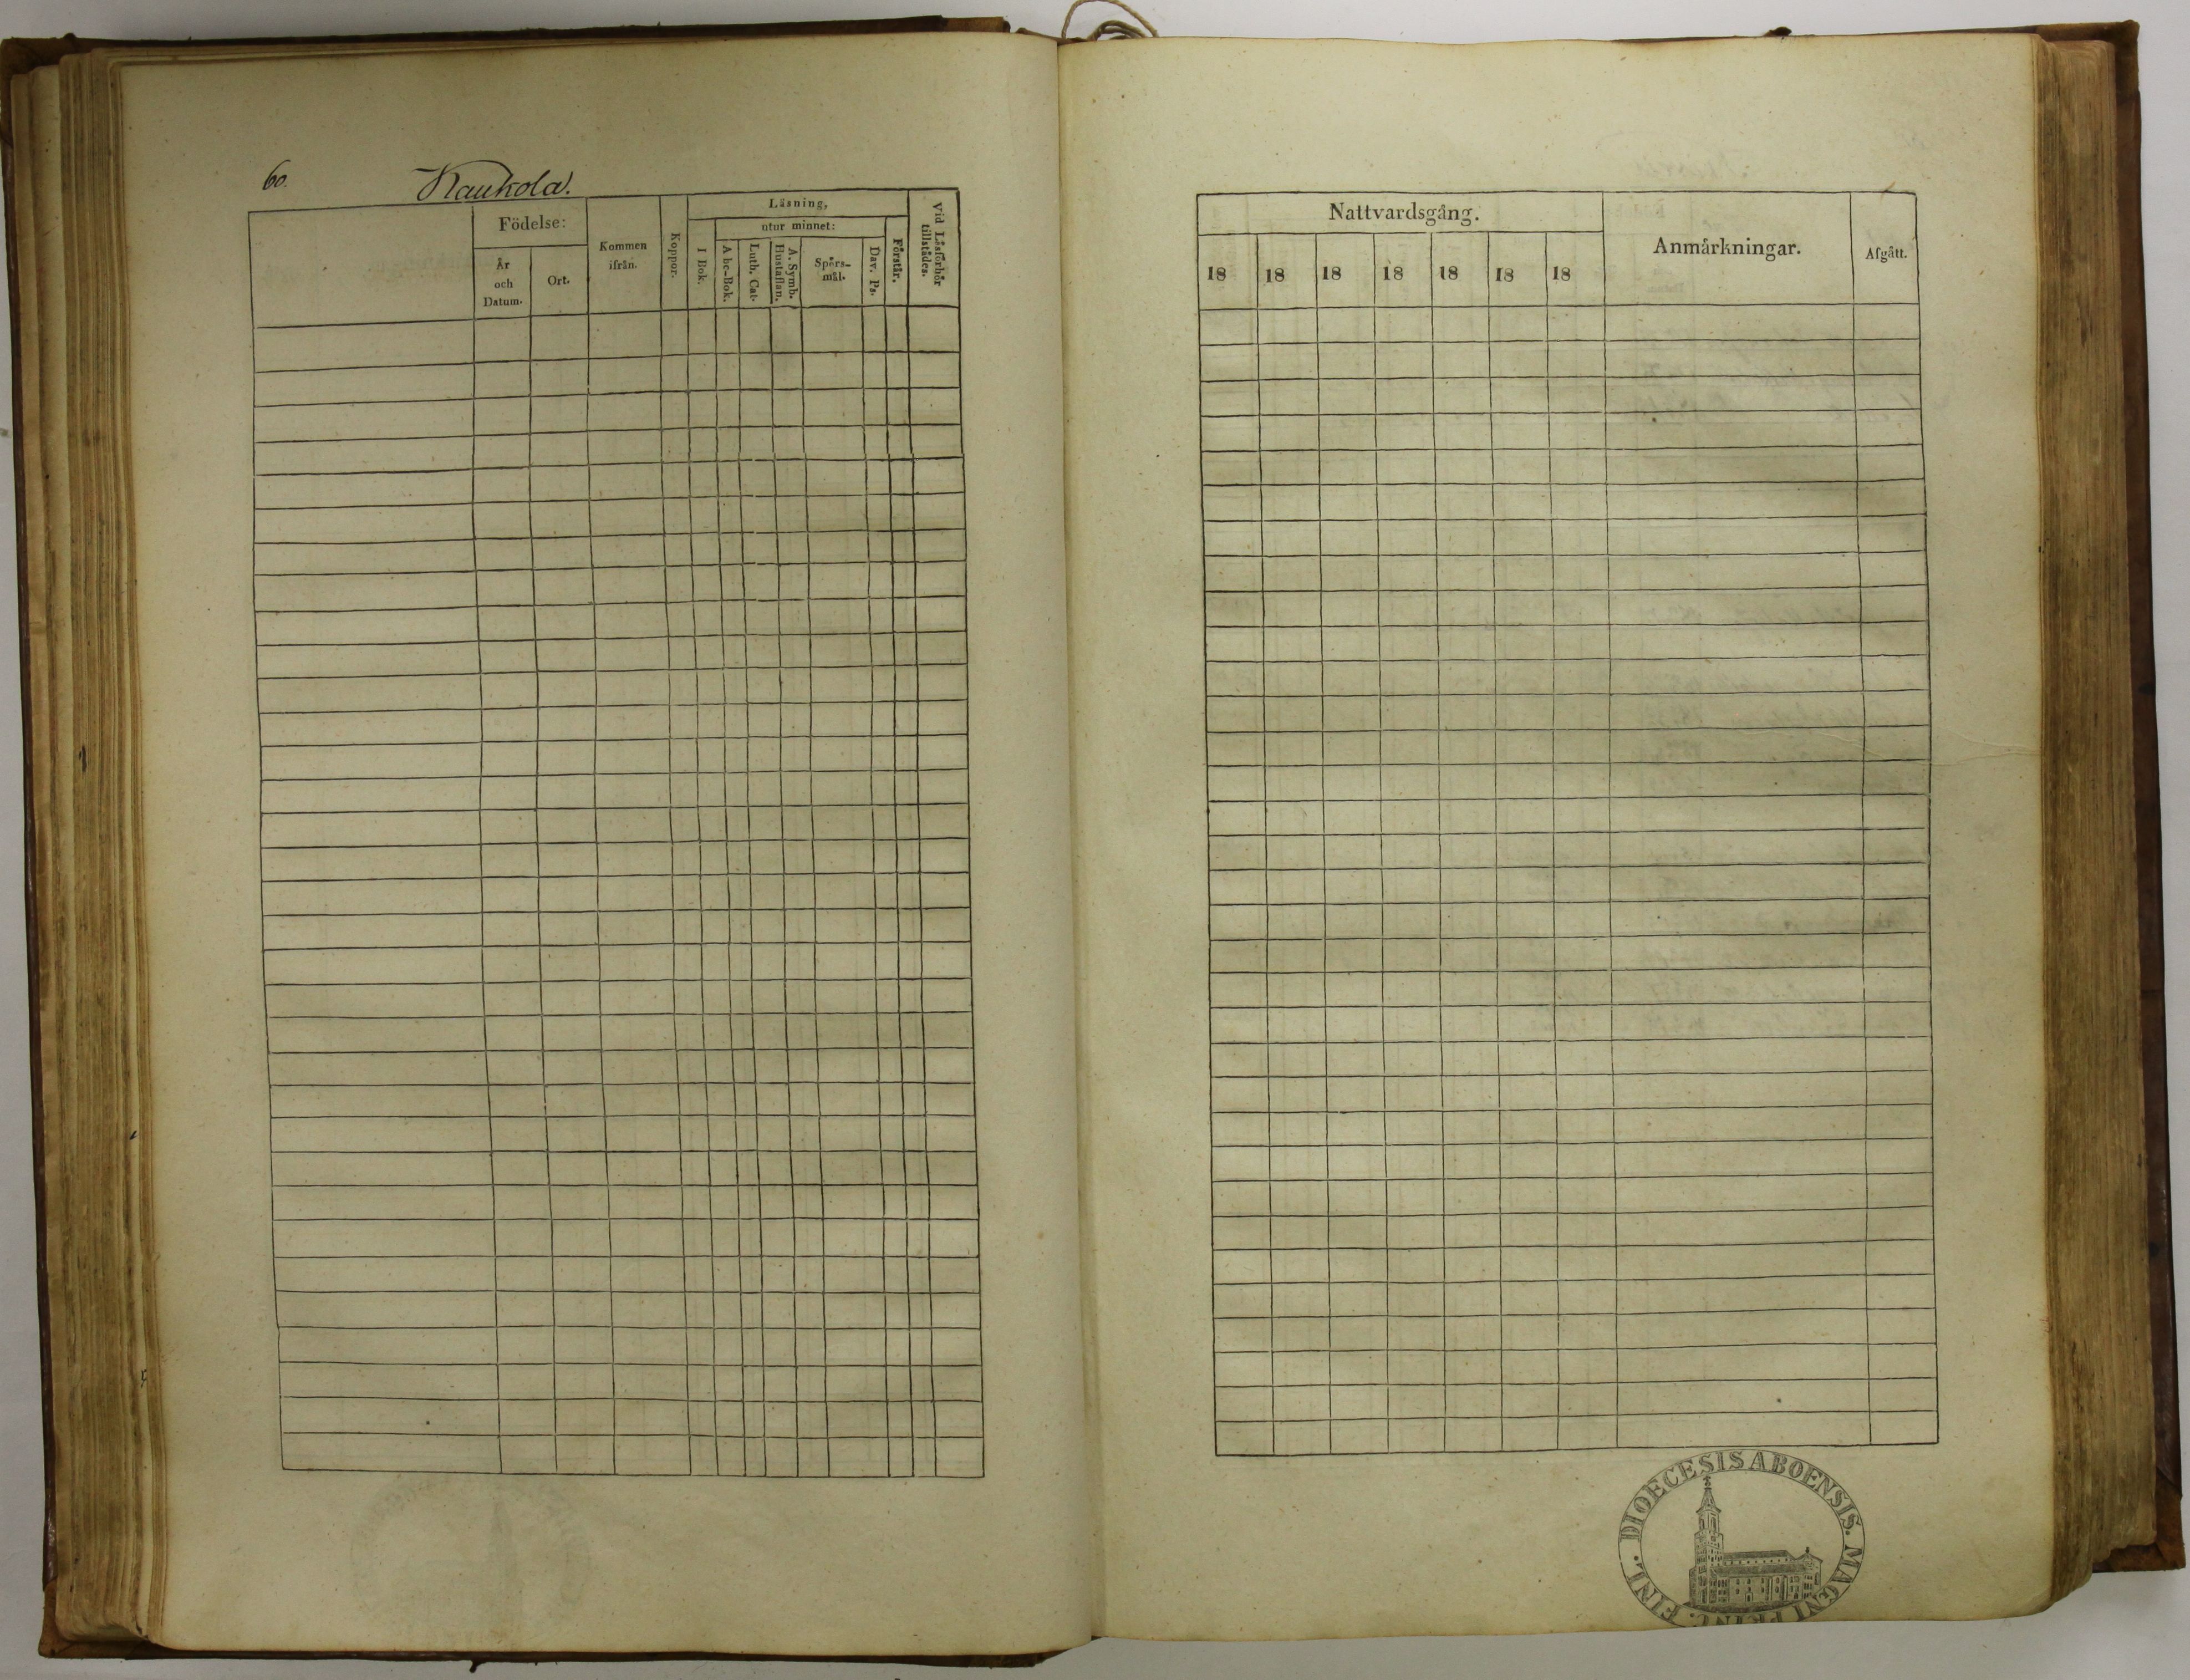 60.
Kaukola.
Födelse:
År
och
Datum.
Ort.
Kommen
ifrån.
Koppor.
Läsning,
utur minnet:
I Bok.
A bc-Bok.
Luth. Cat.
A. Symb.
Hustaflan.
Spörs-
mål.
Dav. Ps.
Förstår.
Vid Läsförhör
tillstädes.
Nattvardsgång.
18 18 18 18 18 18 18
Anmärkningar.
Afgått.
FINL. DIOECESIS ABOENSIS. MAGNI PRINC.